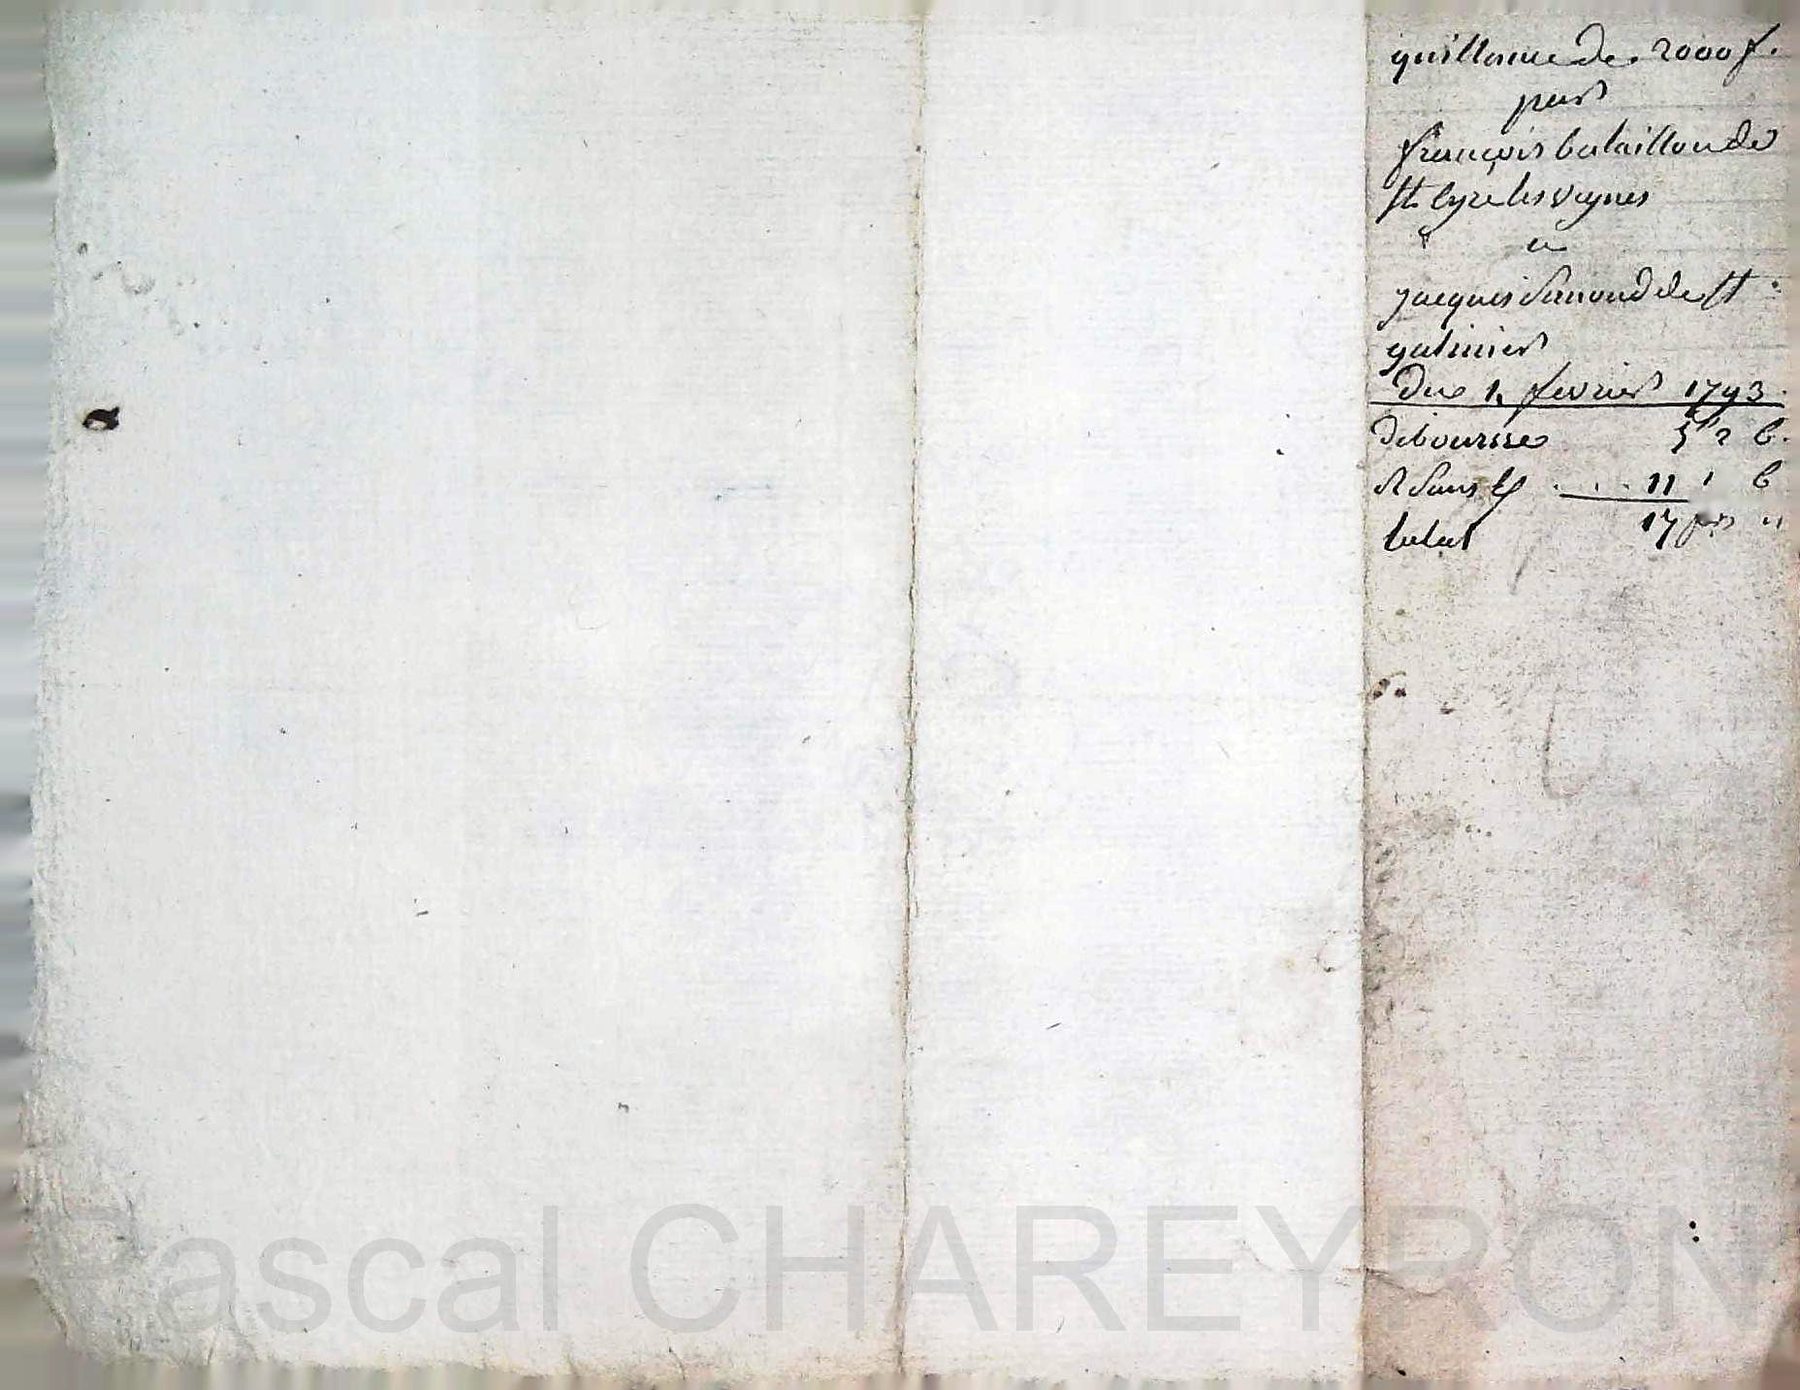 quittance de 2000 f.
par
françois bataillon de
st cyr les vignes
a
jacques Simond de st
galmier
du 1. fevrier 1793.
debourse 5 " 2 6.
et Sans 11 1 6
total 17 "
Pascal CHAREYRON